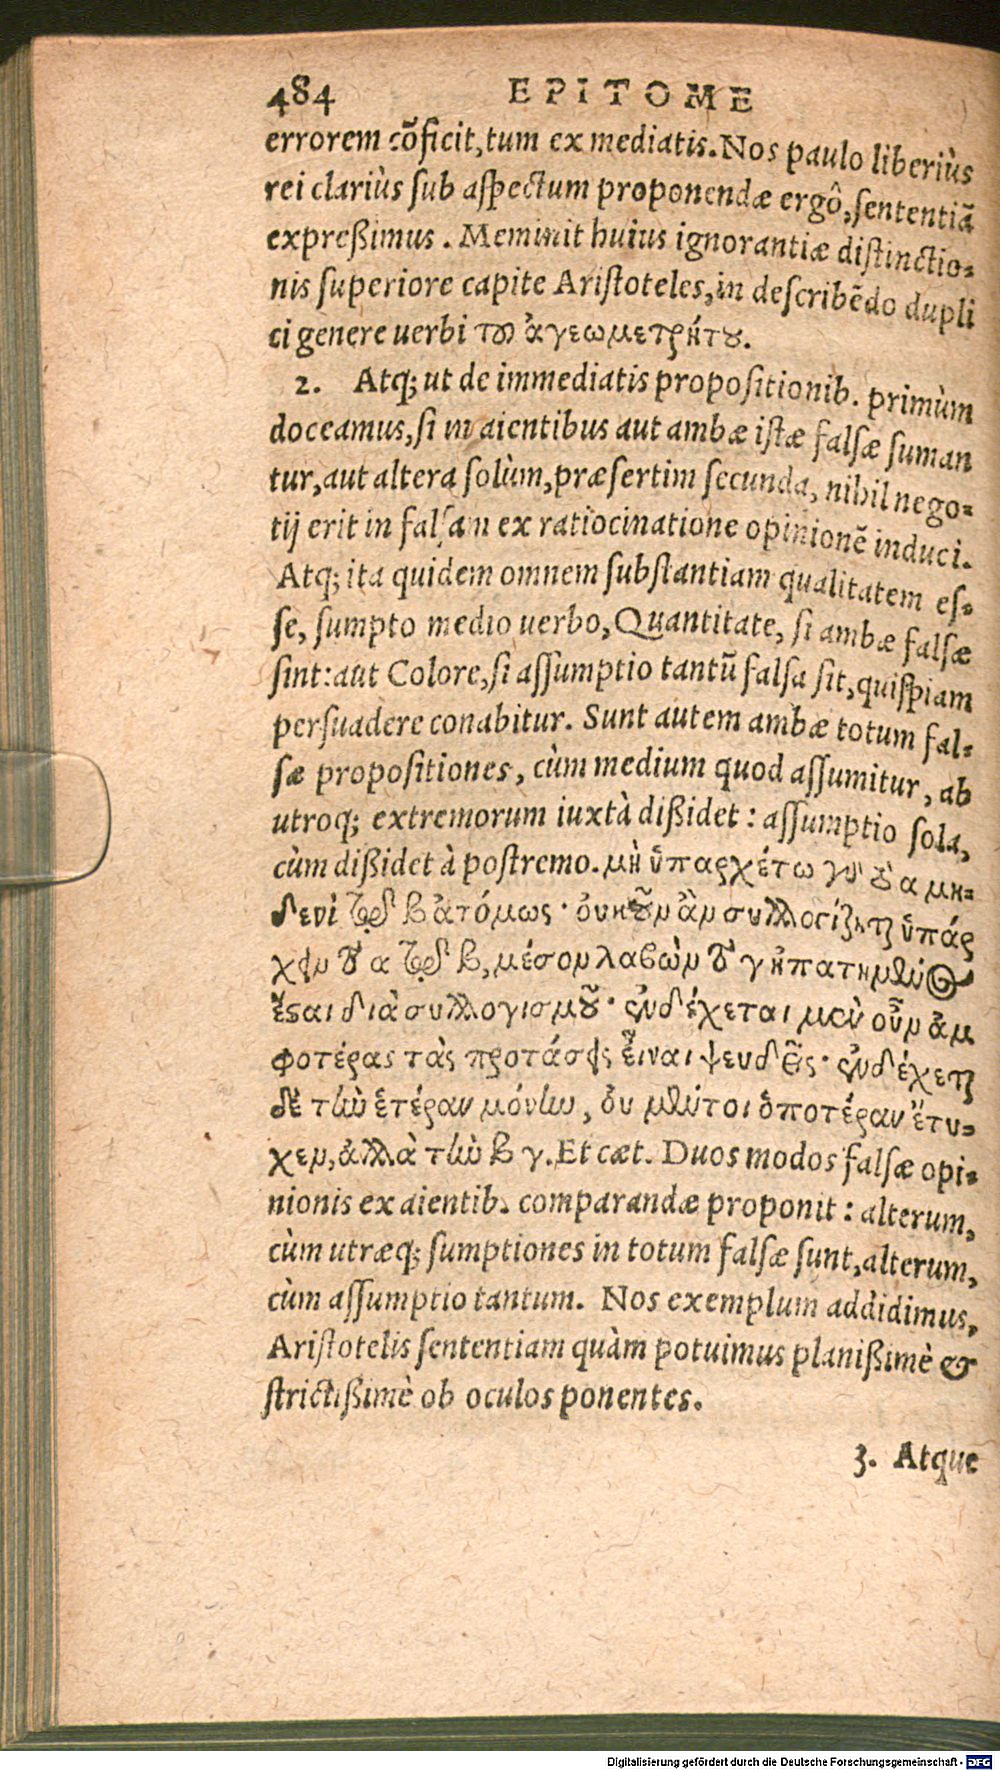 484 EPITOME
errorem cõficit, tum ex mediatis. Nos paulo liberiùs
rei clariùs sub aspectum proponendæ ergô, sententiã
expreßimus. Meminit huius ignorantiæ distinctio-
nis superiore capite Aristoteles, in describẽdo dupli
ci genere uerbi τοῦ ἀγεωμετρήτου.
2. Atq; ut de immediatis propositionib. primùm
doceamus, si in aientibus aut ambæ istæ falsæ suman
tur, aut altera solùm, præsertim secunda, nihil nego-
tij erit in falsam ex ratiocinatione opinionẽ induci.
Atq; ita quidem omnem substantiam qualitatem es-
se, sumpto medio uerbo, Quantitate, si ambæ falsæ
sint: aut Colore, si assumptio tantũ falsa sit, quispiam
persuadere conabitur. Sunt autem ambæ totum fal-
sæ propositiones, cùm medium quod assumitur, ab
utroq; extremorum iuxtà dißidet: assumptio sola,
cùm dißidet à postremo. μὴ ὑπαρχέτω γὸ τὸ α μη-
δενὶ τῶν β ἀτόμως· οὐκοῦν ἂν συλλογίζηται ὑπάρ
χειν τὸ α τῶν β, μέσον λαβὼν τὸ γ ἠπατημένος
ἔσαι διὰ συλλογισμοῦ· ἐνδέχεται μὲν οὖν ἀμ
φοτέρας τὰς προτάσεις εἶναι ψευδεῖς· ἐνδέχεται
δὲ τὴν ἑτέραν μόνην, οὐ μέντοι ὁποτέραν ἔτυ-
χεν, ἀλλὰ τὴν β γ. Et cæt. Duos modos falsæ opi-
nionis ex aientib. comparandæ proponit: alterum,
cùm utræq; sumptiones in totum falsæ sunt, alterum,
cùm assumptio tantum. Nos exemplum addidimus,
Aristotelis sententiam quàm potuimus planißimè &
strictißimè ob oculos ponentes.
3. Atque
Digitalisierung gefördert durch die Deutsche Forschungsgemeinschaft - DFG